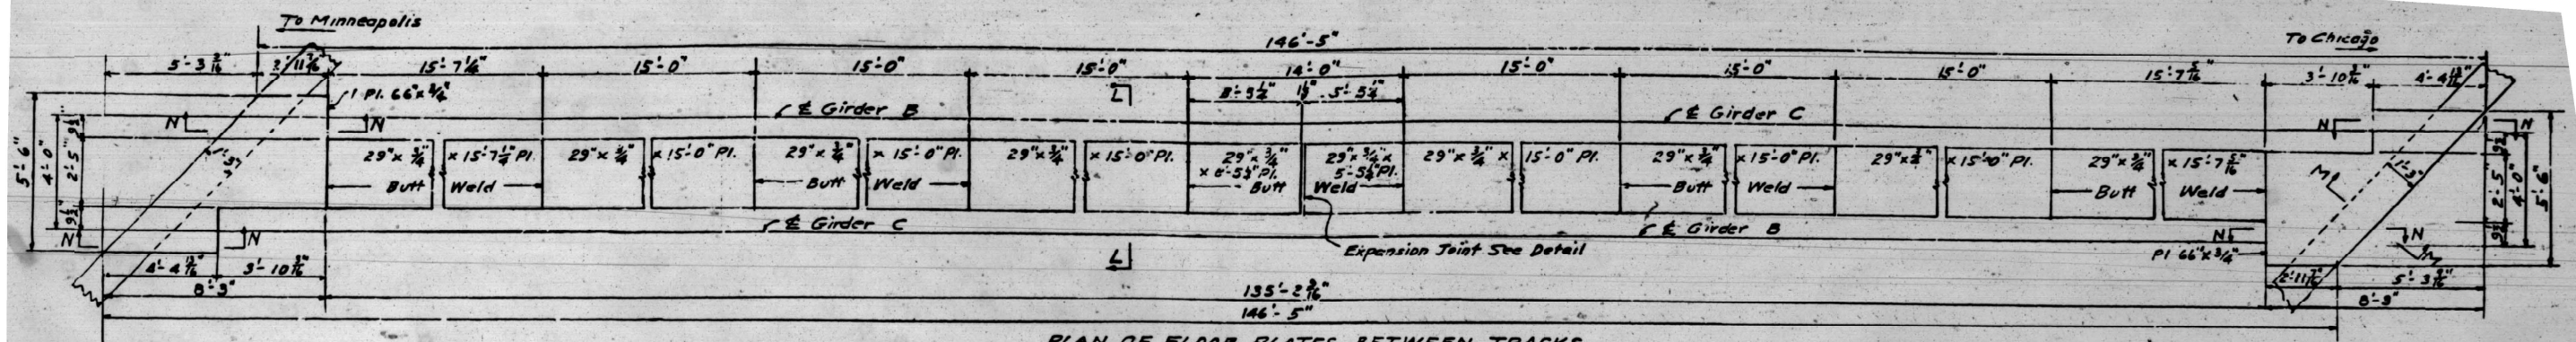 To Minneapolis
To Chicago
146'-5"
5'-3 9/16" 2'-11 7/16" 15'-7 1/4" 15'-0" 15'-0" 15'-0" 14'-0" 15'-0" 15'-0" 15'-0" 15'-7 5/16" 3'-10 3/16" 4'-4 13/16"
1 Pl. 66"x 3/4"
8'-5 1/4" 1 1/2" 5'-5 1/4"
L
℄ Girder B
℄ Girder C
N N N N
5'-6" 4'-0" 2'-5" 9 1/2" 9 1/2"
1'-3"
29"x 3/4" x 15'-7 1/4" Pl. 29"x 3/4" x 15'-0" Pl. 29"x 3/4" x 15'-0" Pl. 29"x 3/4" x 15'-0" Pl. 29"x 3/4" x 8'-5 1/4" Pl. 29"x 3/4" x 5'-5 1/4" Pl. 29"x 3/4" x 15'-0" Pl. 29"x 3/4" x 15'-0" Pl. 29"x 3/4" x 15'-0" Pl. 29"x 3/4" x 15'-7 5/16"
Butt Weld Butt Weld Butt Weld Butt Weld Butt Weld
M
1'-3"
9 1/2" 2'-5" 9 1/2" 4'-0" 5'-6"
℄ Girder C
℄ Girder B
N N N N
M
L
Expansion Joint See Detail
Pl 66"x 3/4"
4'-4 13/16" 3'-10 3/16"
2'-11 7/16" 5'-3 9/16"
8'-3"
135'-2 9/16"
8'-3"
146'-5"
PLAN OF FLOOR PLATES BETWEEN TRACKS